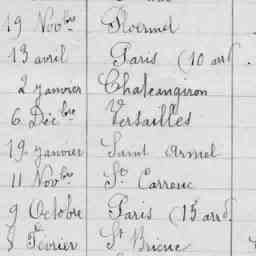 19 Novbre Ploermel
13 avril Paris (10 arrt
2 janvier Chateaugiron
6 Décbre Versailles
19 janvier Saint Armel
11 Novbre St Carreuc
9 Octobre Paris (15 arrt
8 Février St Brieuc